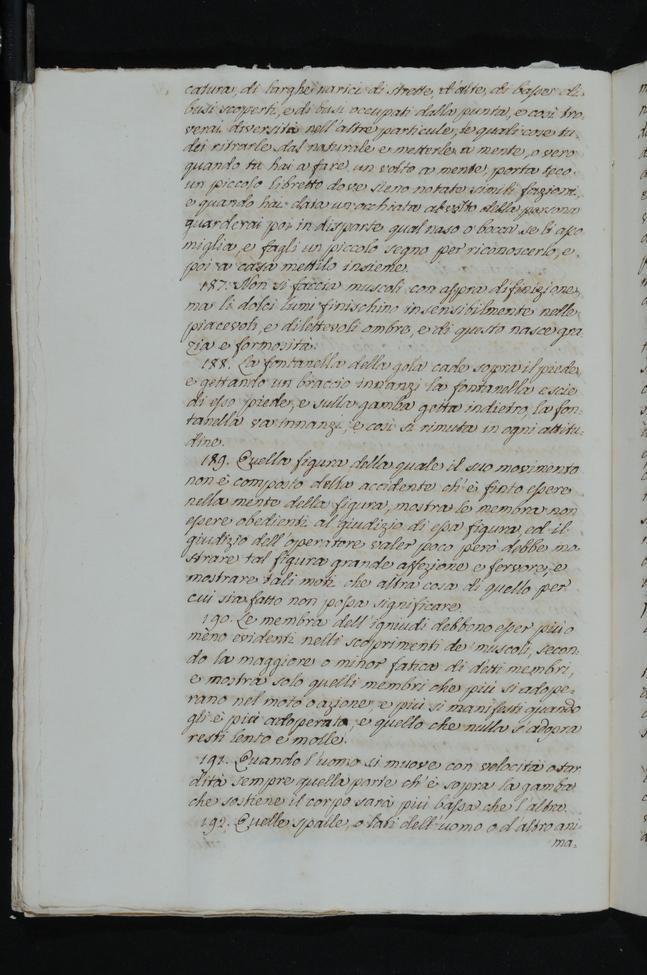 catura, di larghe narici di strette, d'alte, di basse di
busi scoperti, e di busi occupati dalla punta, e così tro-
verai diversità nell'altre particule, le quali cose tu
dei ritrarle dal naturale e metterle a mente, o vero
quando tu hai a fare un volto a mente, porta teco
un piccolo libretto dove sieno notate simili fazioni,
e quando hai data un occhiata al volto della persona
guarderai poi in disparte qual naso o bocca se li asso
miglia, e fagli un piccolo segno per riconoscerlo, e
poi a casa mettilo insieme.
187. Non si faccia muscoli con aspra difinizione,
ma li dolci lumi finischino insensibilmente nelle
piacevoli, e dilettevoli ombre, e di questo nasce gra
zia e formosità.
188. La fontanella della gola cade sopra il piede,
e gettando un braccio innanzi la fontanella escie
di esso piede, e sulla gamba getta indietro, la fon-
tanella va innanzi, e così si rimuta in ogni attitu-
dine.
189. Quella figura della quale il suo movimento
non è composto della accidente ch'è finto essere
nella mente della figura, mostra le membra non
essere obedienti al giudizio di essa figura, ed il
giudizio dell'operatore valer poco però debbe mo
strare tal figura grande affezione e fervore, e
mostrare tali moti che altra cosa di quello per
cui sia fatto non possa significare.
190. Le membra dell'igniudi debbono esser più o
meno evidenti nelli scoprimenti de' muscoli, secon-
do la maggiore o minor fatica di detti membri,
e mostra solo quelli membri che più si adope-
rano nel moto o azione, e più si manifesti quando
gli è più adoperato, e quello che nulla s'adopra
resti lento e molle.
191. Quando l'uomo si muove con velocità o tar
dità sempre quella parte ch'è sopra la gamba
che sostiene il corpo sarà più bassa che l'altra.
192. Quelle spalle, o lati dell'uomo o d'altro ani
ma-